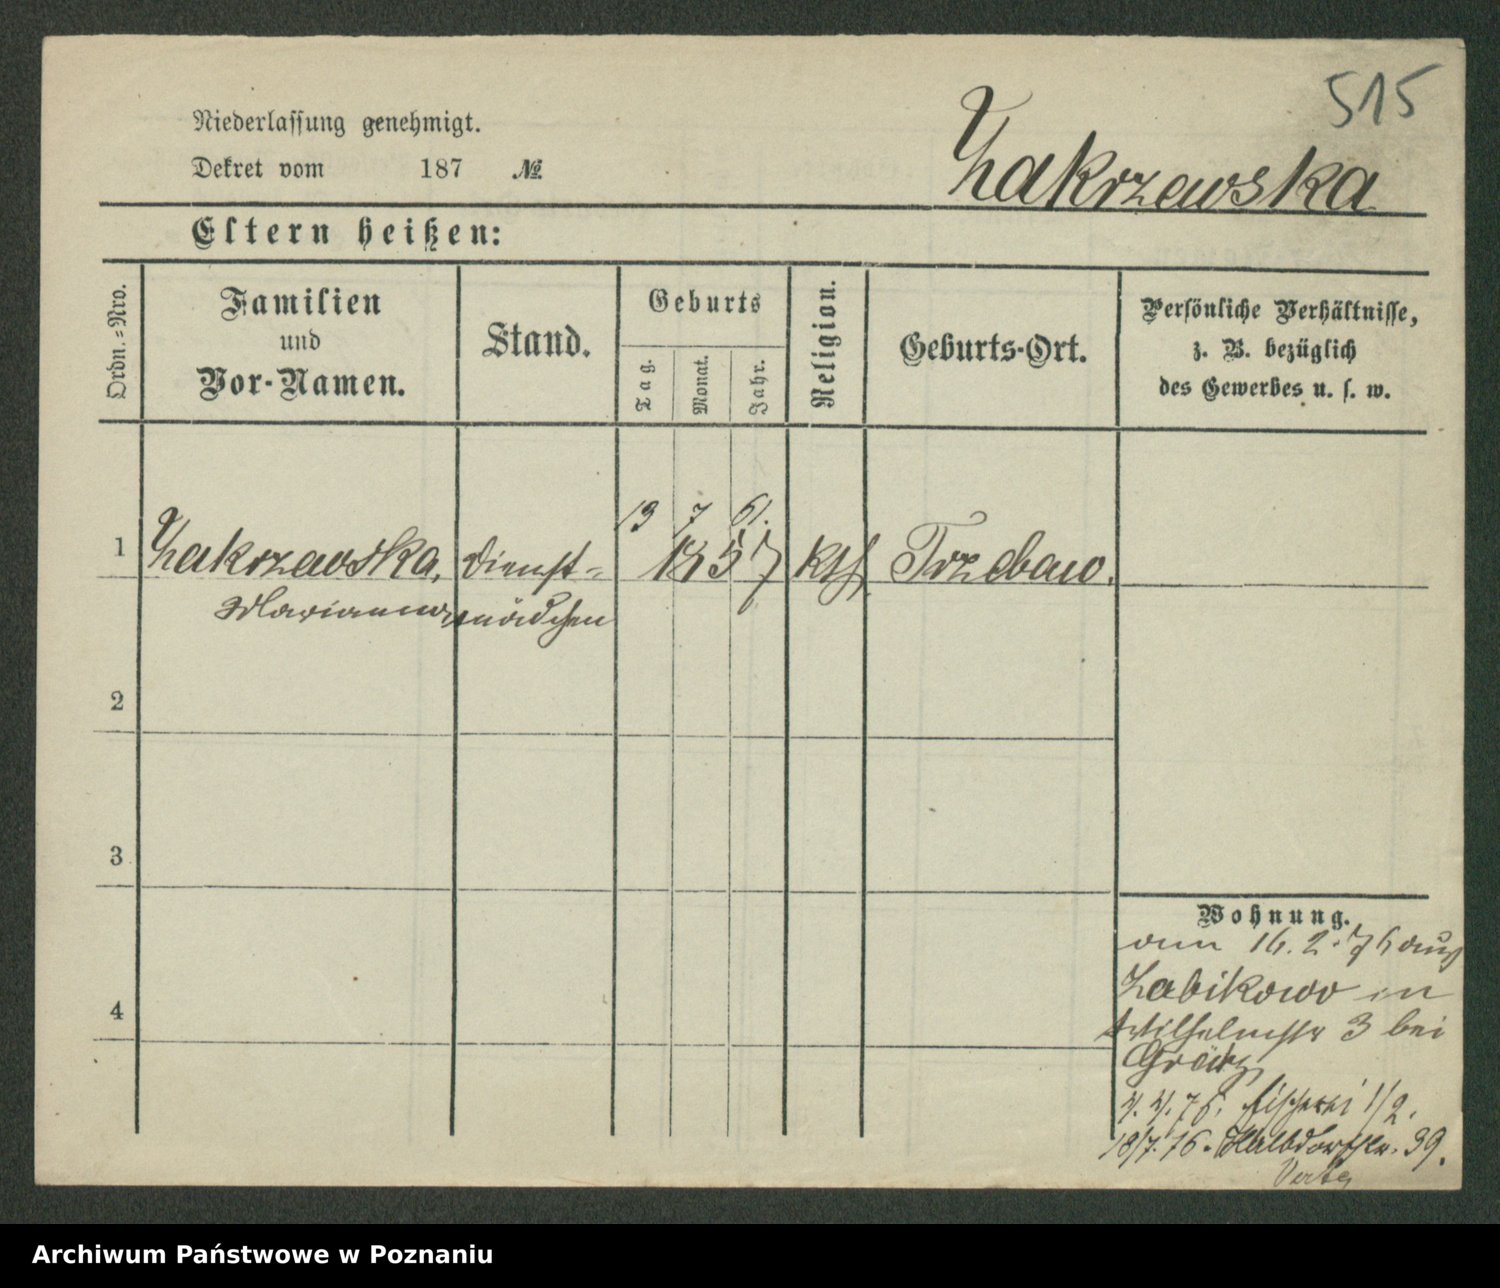 515
Niederlassung genehmigt.
Dekret vom 187 №
Zakrzewska
Eltern heißen:
Ordn.=Nro.
Familien
und
Vor-Namen.
Stand.
Geburts
Tag.
Monat.
Jahr.
Religion.
Geburts-Ort.
Persönliche Verhältnisse,
z. B. bezüglich
des Gewerbes u. s. w.
13 7 61.
1 Zakrzewska, Dienst= 1857 kth Trzebaw.
Marianna mädchen
2
3
4
Wohnung.
am 16.2.76 aus
Zabikowo in
Wilhelmstr 3 bei
Grätz
4.4.76. Fischerei 1/2.
18/7.76. Halbdorfstr. 39.